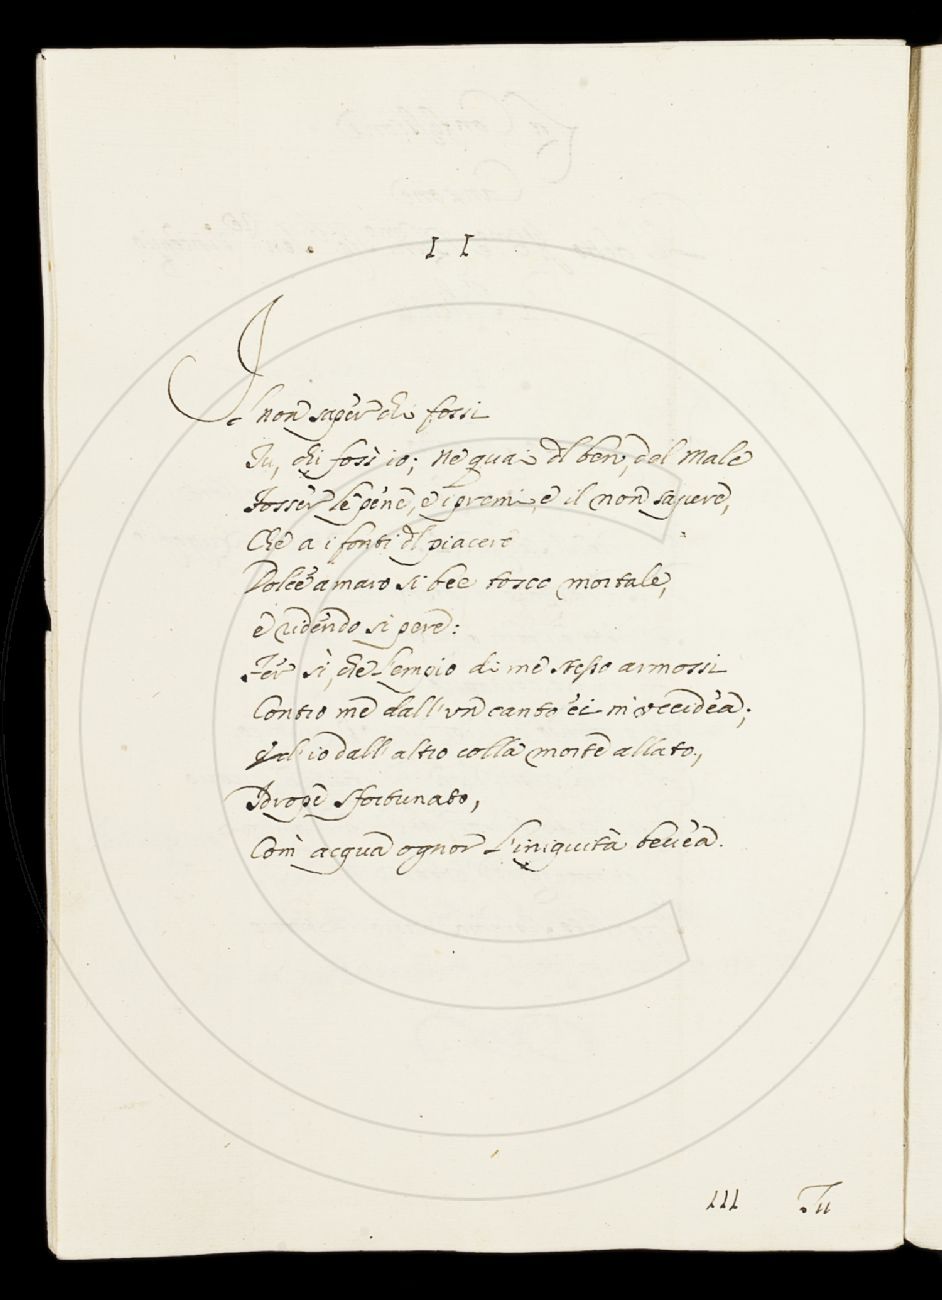 II
Il non saper chi fossi
Tu, chi foss' io; nè quai del ben, del male
Fosser le pene, e i premi, e il non sapere,
Che a i fonti del piacere
Dolce amaro si bee tosco mortale,
e ridendo si pere:
Fer sì, che l'empio di me stesso armossi
Contro me dall' un canto ei m' uccidea;
ed io dall' altro colla morte allato,
Idrope sfortunato,
Com' acqua ognor l'iniquità bevea.
III Tu